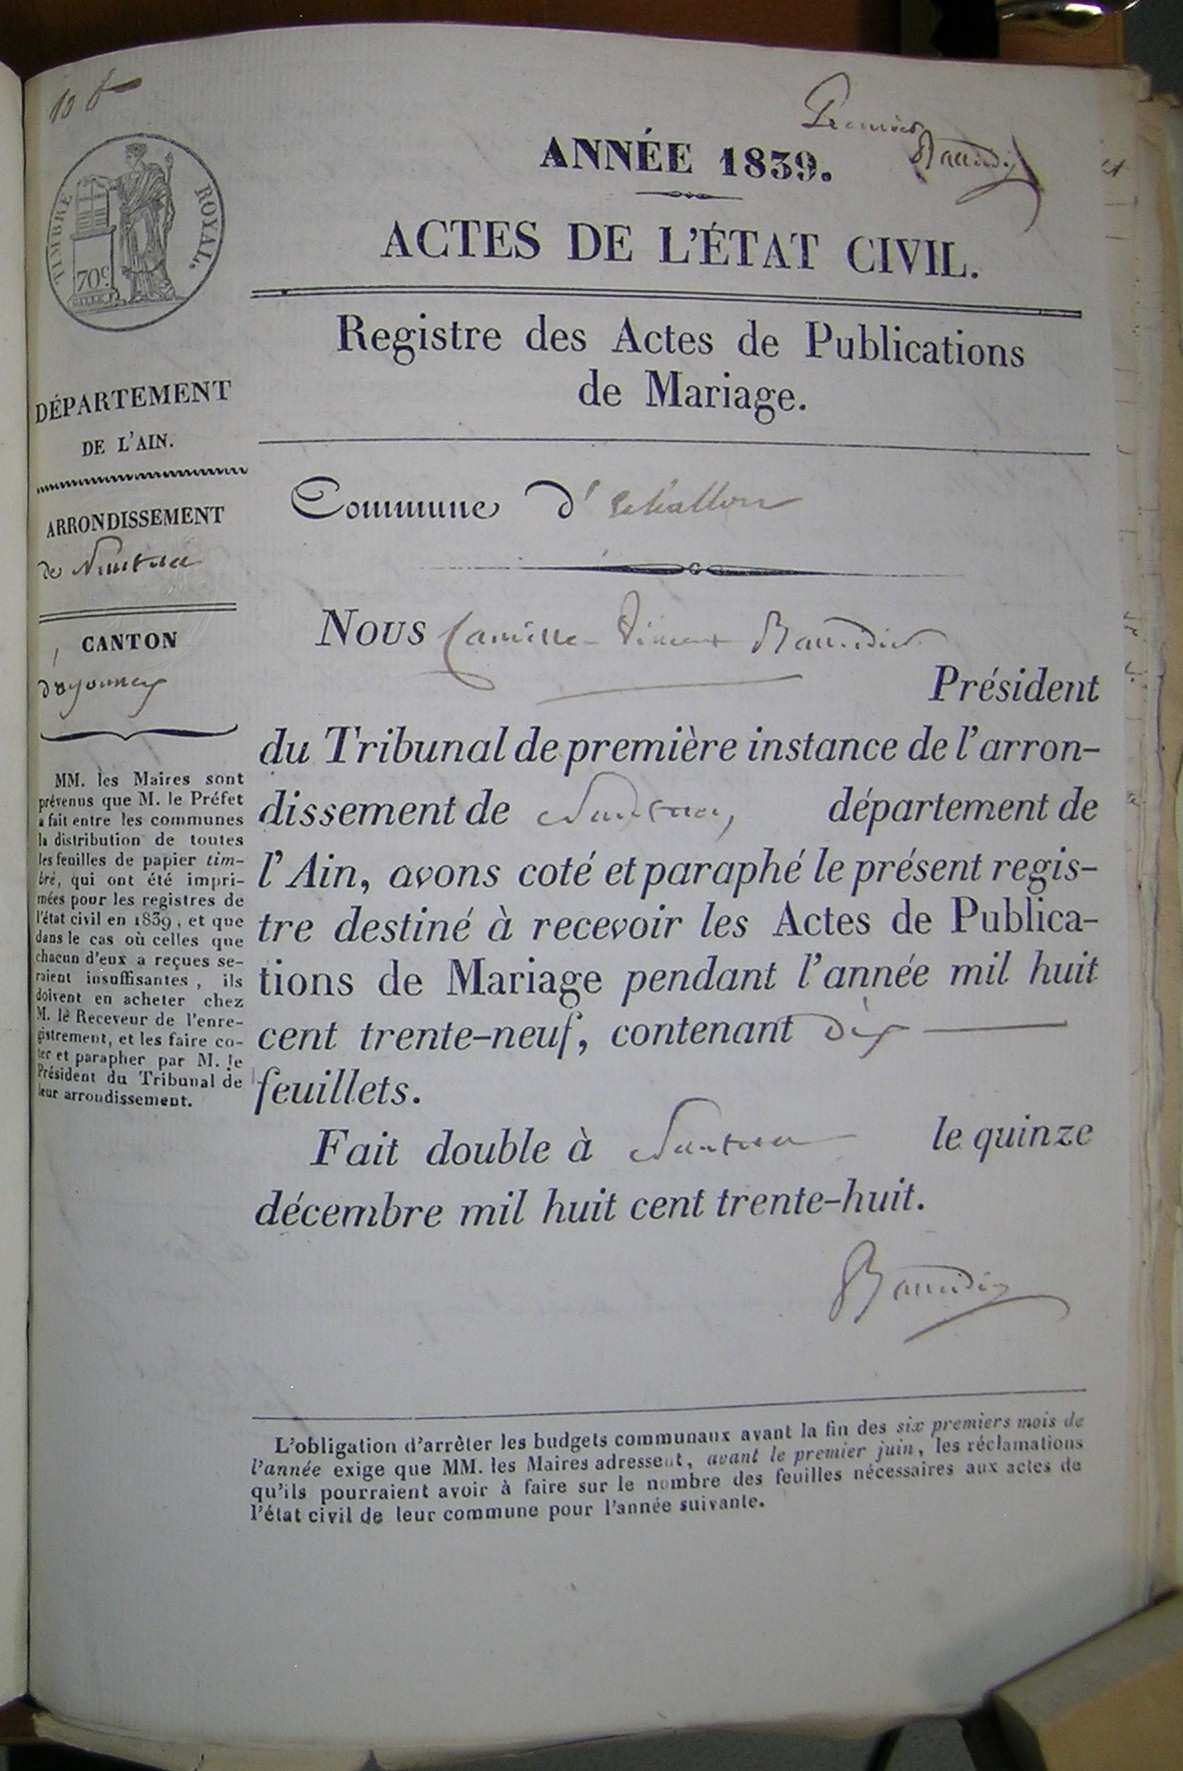 10 f
Premier
Baudin
ANNÉE 1839.
ACTES DE L'ÉTAT CIVIL.
TIMBRE ROYAL.
70c
Registre des Actes de Publications
de Mariage.
DÉPARTEMENT
DE L'AIN.
ARRONDISSEMENT
de Nantua
CANTON
d'oyonnax
MM. les Maires sont
prévenus que M. le Préfet
a fait entre les communes
la distribution de toutes
les feuilles de papier tim-
bré, qui ont été impri-
mées pour les registres de
l'état civil en 1839, et que
dans le cas où celles que
chacun d'eux a reçues se-
raient insuffisantes, ils
doivent en acheter chez
M. le Receveur de l'enre-
gistrement, et les faire co-
ter et parapher par M. le
Président du Tribunal de
leur arrondissement.
Commune d'Echallon
Nous Camille Vincent
Président
du Tribunal de première instance de l'arron-
dissement de Nantua, département de
l'Ain, avons coté et paraphé le présent regis-
tre destiné à recevoir les Actes de Publica-
tions de Mariage pendant l'année mil huit
cent trente-neuf, contenant dix
feuillets.
Fait double à Nantua le quinze
décembre mil huit cent trente-huit.
L'obligation d'arrêter les budgets communaux avant la fin des six premiers mois de
l'année exige que MM. les Maires adressent, avant le premier juin, les réclamations
qu'ils pourraient avoir à faire sur le nombre des feuilles nécessaires aux actes de
l'état civil de leur commune pour l'année suivante.